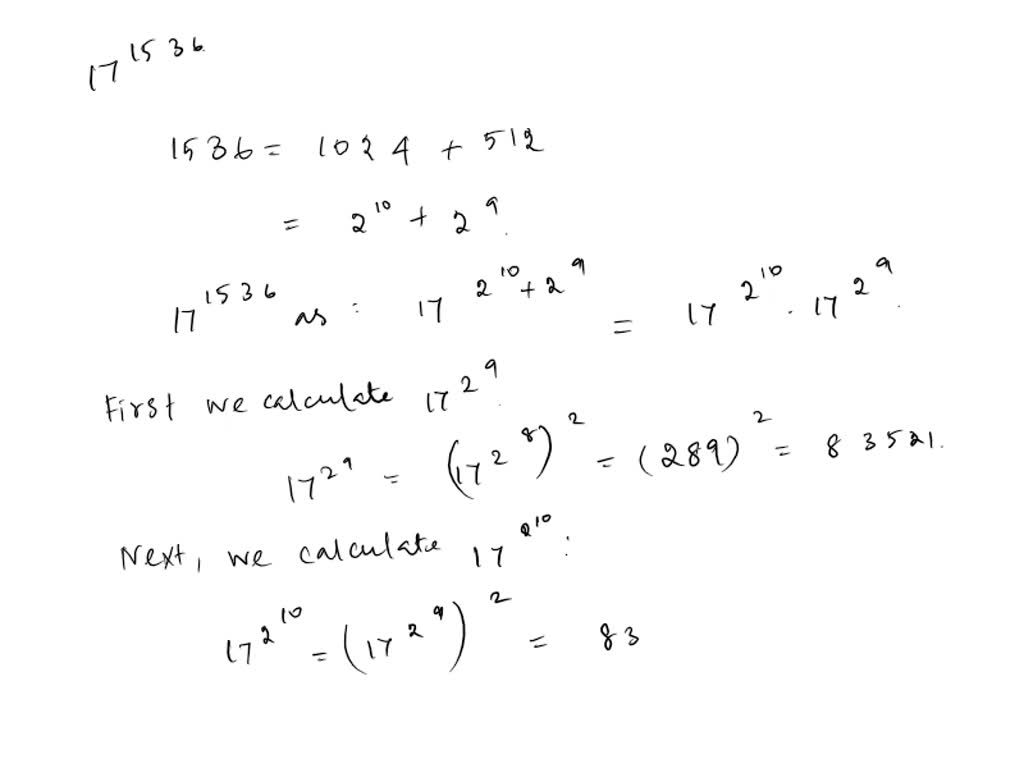 17^1536
1536 = 1024 + 512
= 2^10 + 2^9.
17^1536 as : 17^(2^10 + 2^9) = 17^(2^10) . 17^(2^9).
First we calculate 17^(2^9).
17^(2^9) = (17^(2^8))^2 = (289)^2 = 83521.
Next, we calculate 17^(2^10) :
17^(2^10) = (17^(2^9))^2 = 83